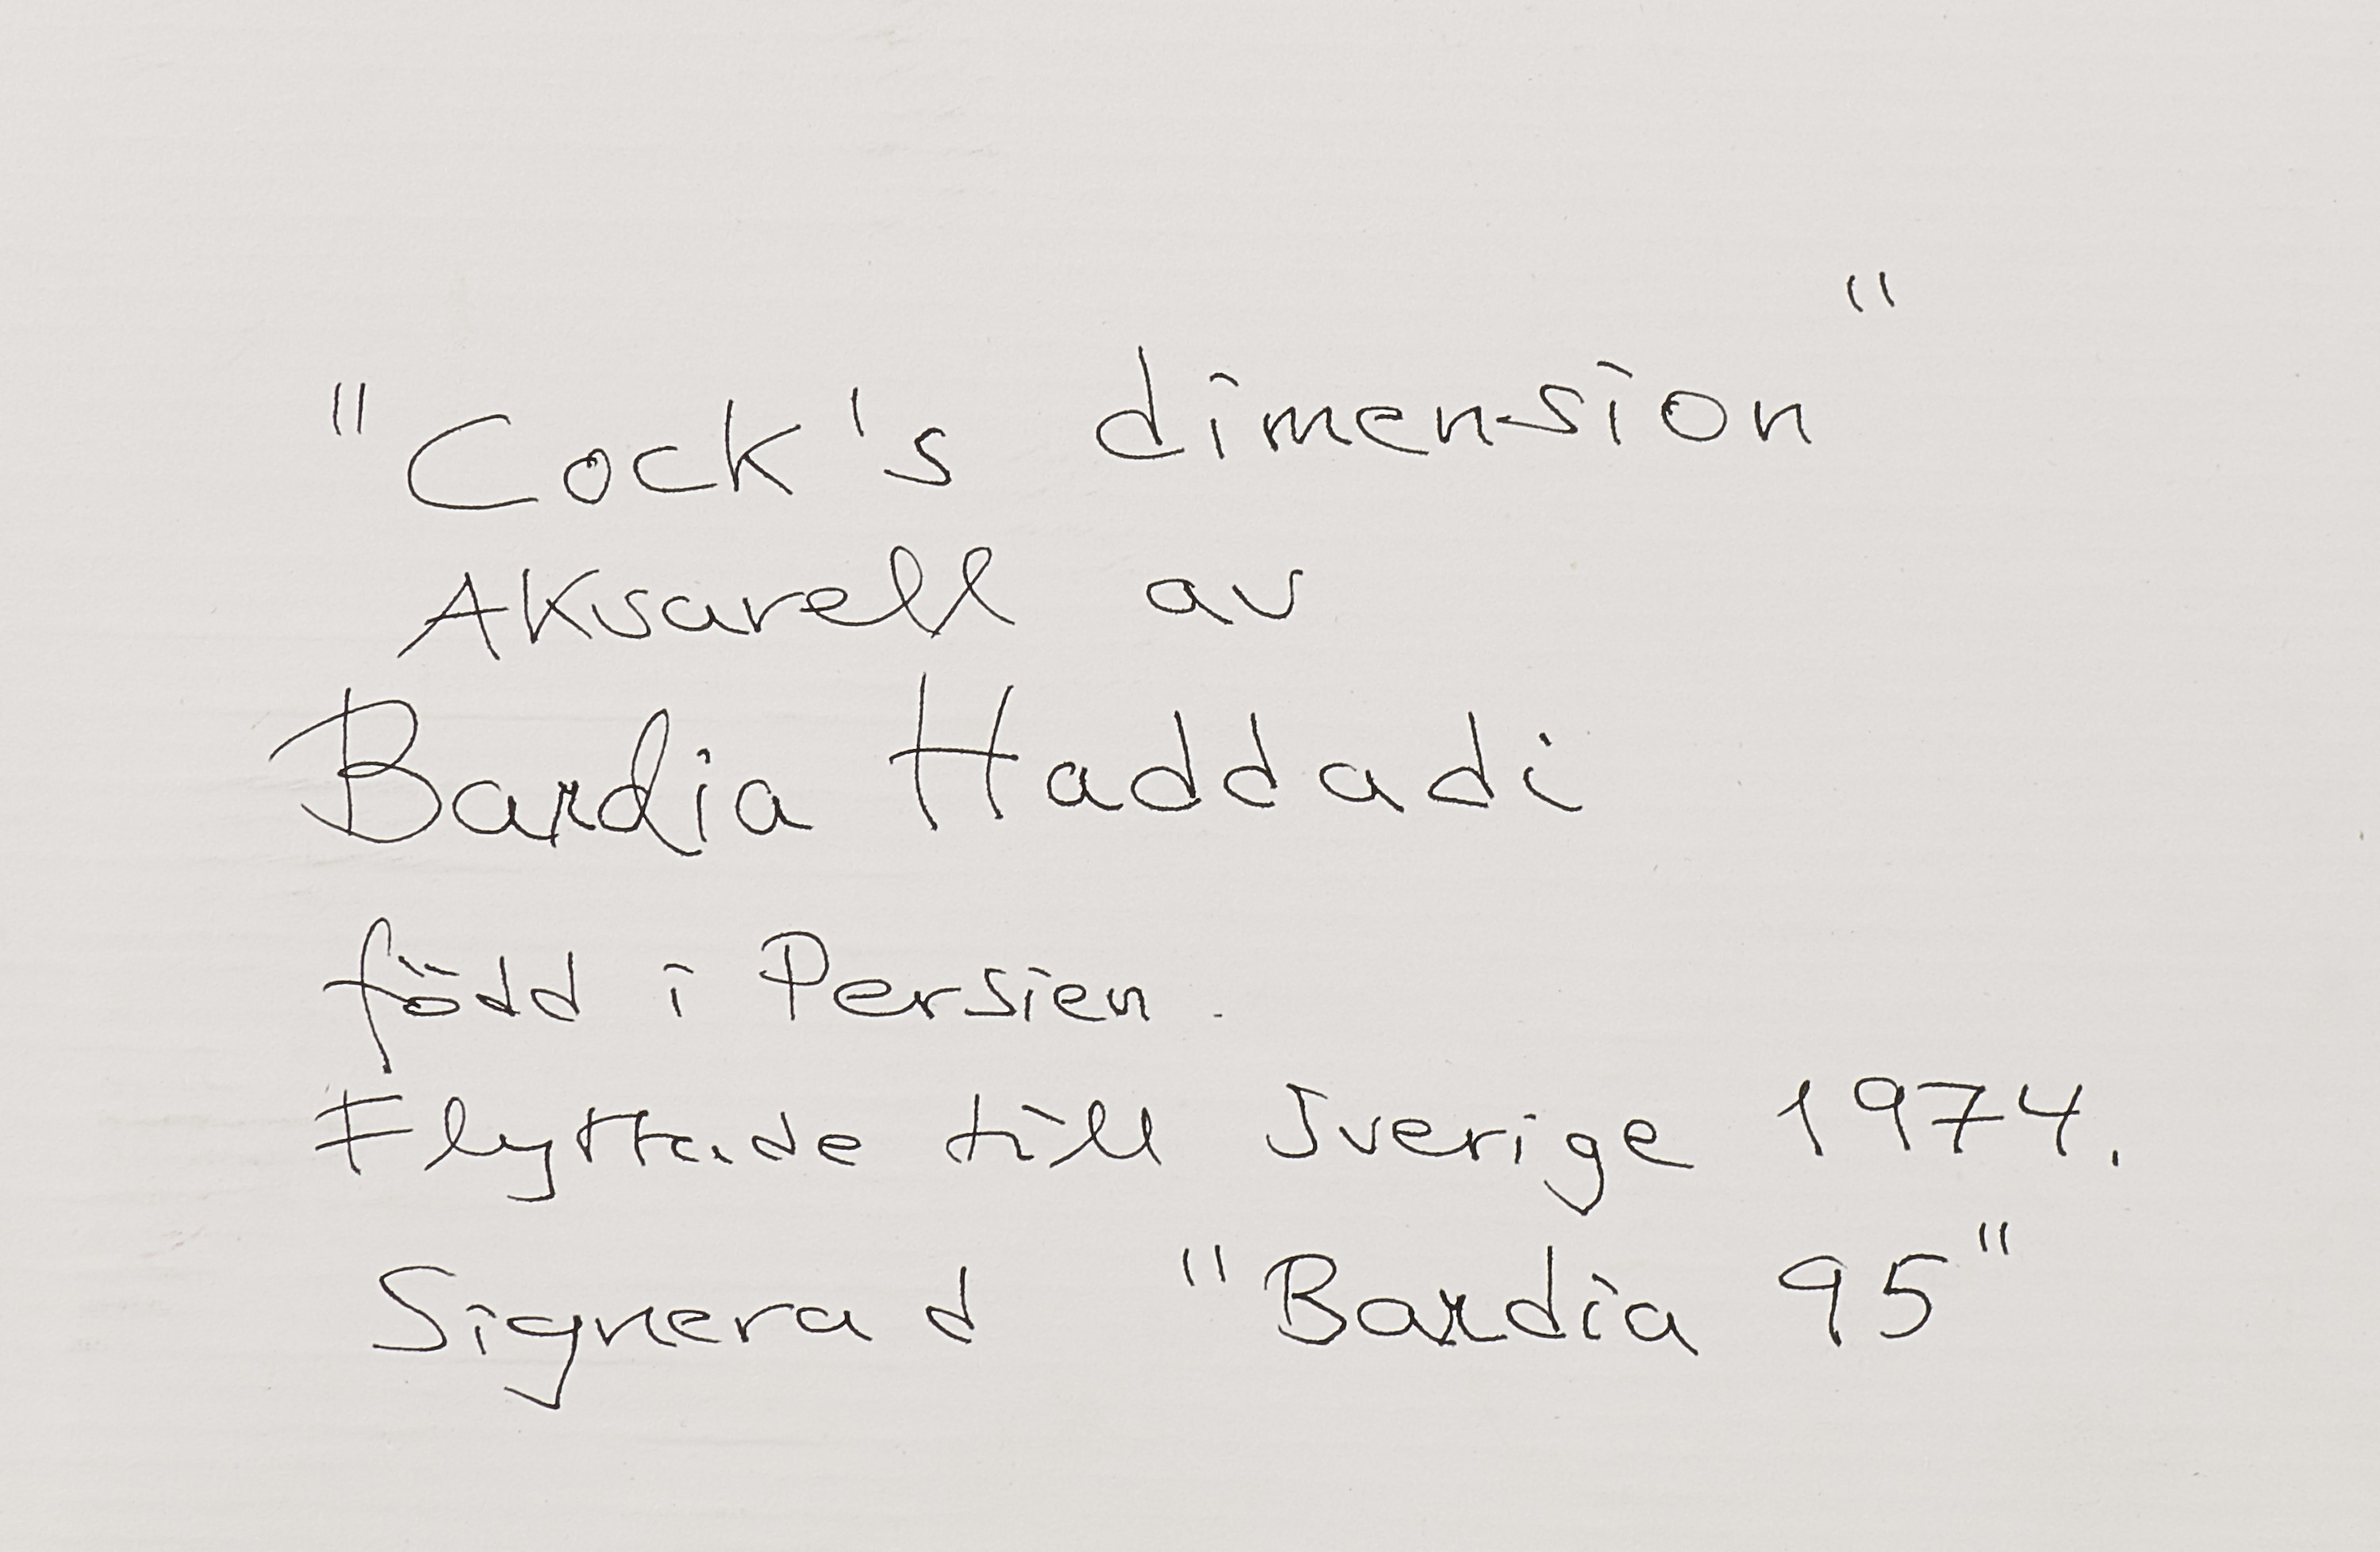 "Cock's dimension"
Akvarell av
Bardia Haddadi
född i Persien.
Flyttade till Sverige 1974.
Signerad "Bardia 95"